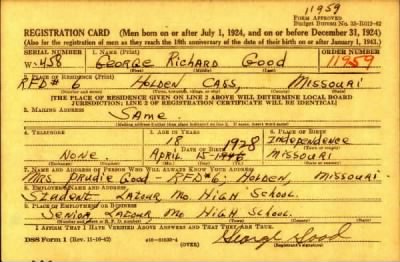 11959
FORM APPROVED
Budget Bureau No. 33-R012-42
REGISTRATION CARD (Men born on or after July 1, 1924, and on or before December 31, 1924)
(Also for the registration of men as they reach the 18th anniversary of the date of their birth on or after January 1, 1943.)
SERIAL NUMBER 1. NAME (Print) ORDER NUMBER
W-458 GEORGE RICHARD GOOD 11959
2. PLACE OF RESIDENCE (Print)
RFD# 6 HOLDEN CASS, MISSOURI
[THE PLACE OF RESIDENCE GIVEN ON LINE 2 ABOVE WILL DETERMINE LOCAL BOARD
JURISDICTION; LINE 2 OF REGISTRATION CERTIFICATE WILL BE IDENTICAL]
3. MAILING ADDRESS
SAME.
4. TELEPHONE 5. AGE IN YEARS 6. PLACE OF BIRTH
18 INDEPENDENCE
DATE OF BIRTH 1928
NONE APRIL 15 MISSOURI
7. NAME AND ADDRESS OF PERSON WHO WILL ALWAYS KNOW YOUR ADDRESS
MRS. DRUDIE GOOD - RFD#6; HOLDEN, MISSOURI
8. EMPLOYER'S NAME AND ADDRESS
STUDENT LATOUR, MO. HIGH SCHOOL.
SENIOR, LATOUR, MO HIGH SCHOOL.
I AFFIRM THAT I HAVE VERIFIED ABOVE ANSWERS AND THAT THEY ARE TRUE.
DSS Form 1 (Rev. 11-16-42) (OVER) George Good
(Registrant's signature)